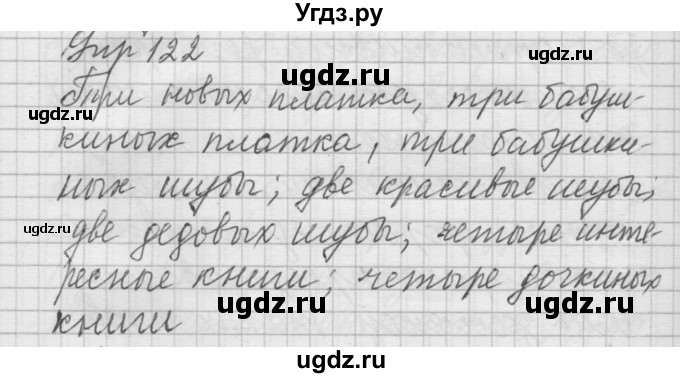 Угдз.ру
Упр 122
ugdz.ru
ugdz.ru
Три новых платка, три бабуш-
киных платка, три бабушки-
ных шубы; две красивые шубы;
ugdz.ru
ugdz.ru
две дедовых шубы; четыре инте-
ресные книги; четыре дочкиных
ugdz.ru
ugdz.ru
книги
ugdz.ru